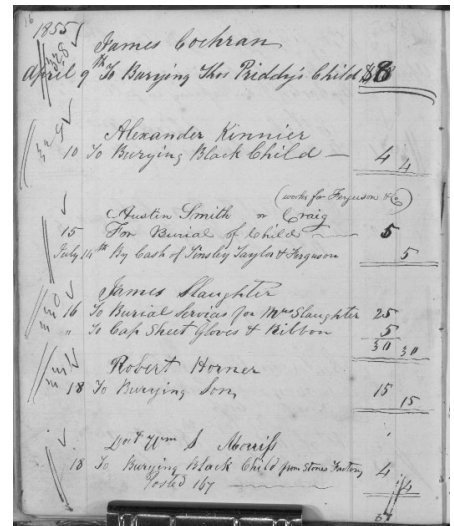 16
1855
James Cochran
April 9th To Burying Thos Priddy's Child $8
Alexander Kinnier
10 To Burying Black Child — 4 4
(works for Ferguson &c)
Austin Smith or Craig
15 For Burial of Child 5
July 14th By Cash of Tinsley Taylor & Ferguson 5
James Slaughter
16 To Burial Services for Mrs Slaughter 25
" To Cap Sheet Gloves & Ribbon 5
30 30
Robert Horner
18 To Burying Son 15
15
Wm S Morriss
18 To Burying Black Child from Stones Factory 4
Posted 167 4